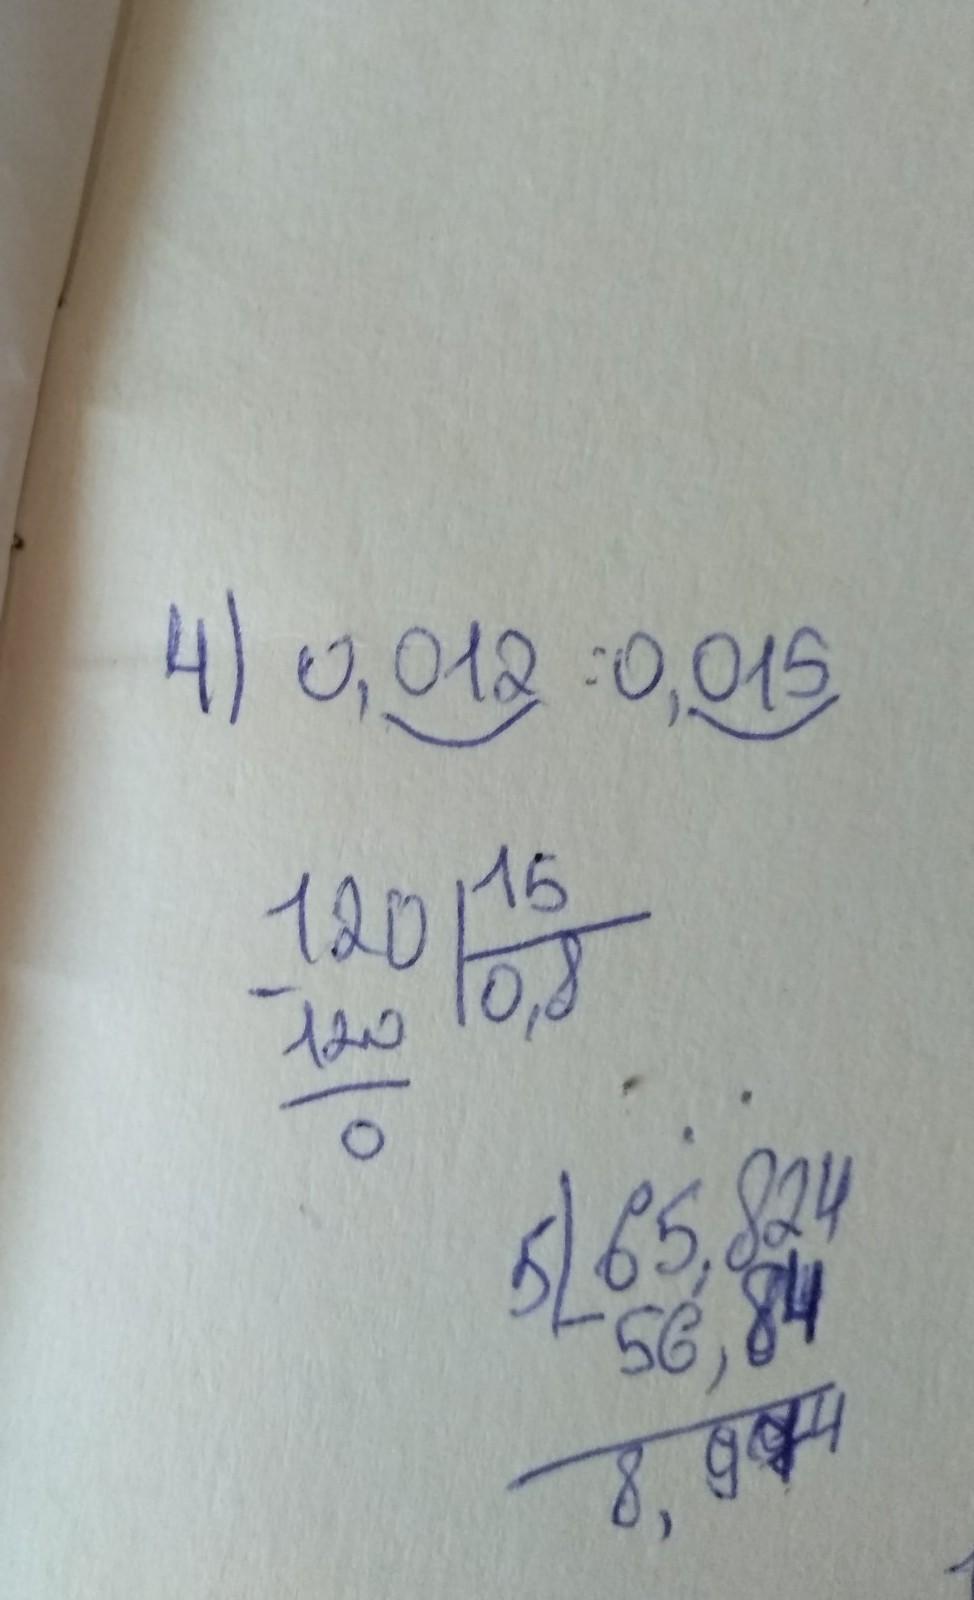 4) 0,012 :0,015
120 | 15
- 0,8
120
0
5) 65,824
- 56,84
8,9